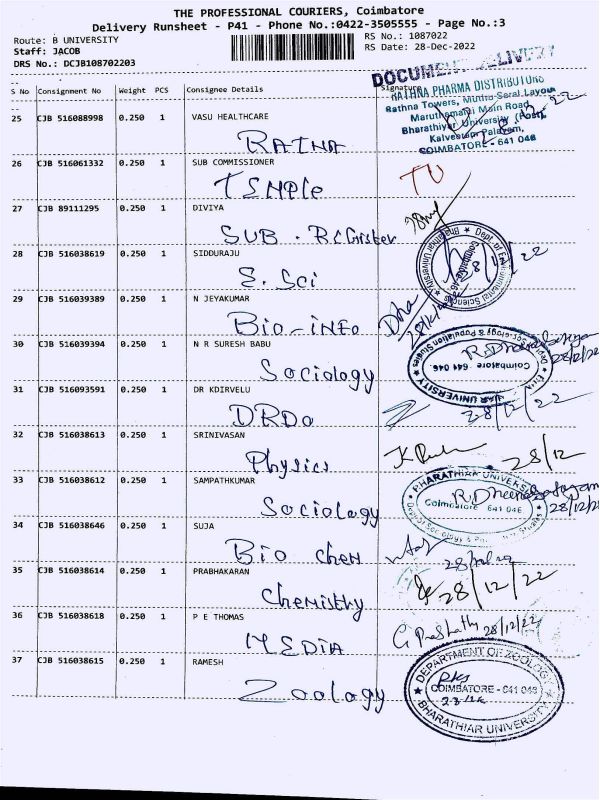 THE PROFESSIONAL COURIERS, Coimbatore
Delivery Runsheet - P41 - Phone No.:0422-3505555 - Page No.:3
Route: B UNIVERSITY
Staff: JACOB
DRS No.: DCJB108702203
RS No.: 1087022
RS Date: 28-Dec-2022
S No Consignment No Weight PCS Consignee Details Signature
DOCUMENT DELIVERY
RATHNA PHARMA DISTRIBUTORS
Rathna Towers, Muthu Saral Layout
Maruthamalai Main Road
Bharathiyar University (Post),
Kalveerampalayam,
COIMBATORE - 641 046
25 CJB 516088998 0.250 1 VASU HEALTHCARE
RATNA
26 CJB 516061332 0.250 1 SUB COMMISSIONER
TEMPLE
27 CJB 89111295 0.250 1 DIVIYA
SUB. REGister
28 CJB 516038619 0.250 1 SIDDURAJU
E. Sci
Dept. of Environmental Sciences
Bharathiar University
Coimbatore-46
29 CJB 516039389 0.250 1 N JEYAKUMAR
Bio-info
30 CJB 516039394 0.250 1 N R SURESH BABU
Sociology
Coimbatore 641 046.
28/12/22
31 CJB 516093591 0.250 1 DR KDIRVELU
DRDO
28/12/22
32 CJB 516038613 0.250 1 SRINIVASAN
Physics
28/12
33 CJB 516038612 0.250 1 SAMPATHKUMAR
Sociology
BHARATHIAR UNIVERSITY
Coimbatore 641 046
34 CJB 516038646 0.250 1 SUJA
Bio chem
35 CJB 516038614 0.250 1 PRABHAKARAN
28/12/22
Chemistry
36 CJB 516038618 0.250 1 P E THOMAS
G Prashath 28/12/22
MEDIA
37 CJB 516038615 0.250 1 RAMESH
Zoology
DEPARTMENT OF ZOOLOGY
COIMBATORE - 641 046
BHARATHIAR UNIVERSITY